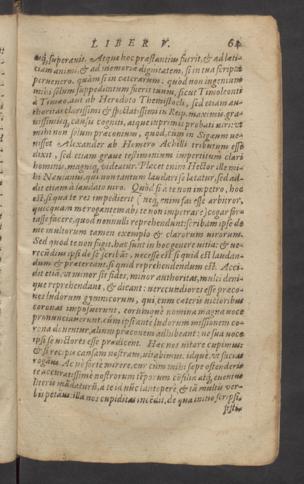 LIBER V. 64
usq́; superauit. Atque hoc præstantius fuerit, & ad læti-
tiam animi, & ad memoriæ dignitatem, si in tua scripta
peruenero, quàm si in cæterorum: quòd non ingenium
mihi solum suppeditatum fuerit tuum, sicut Timoleonti
à Timæo, aut ab Herodoto Themistocli, sed etiam au-
thoritas clarissimi & spectatissimi
grauissimisq́; caussis cogniti, atque inprimis probati: ut nõ
mihi non solum præconium, quod, cum in Sigæum ue-
nisset Alexander ab Homero Achilli tributum esse
dixit, sed etiam graue testimonium impertitum clari
hominis, magniq́; uideatur. Placet enim Hector ille mi-
hi Næuianus, qui non tantum laudari se lætatur, sed ad-
dit etiam à laudato uiro. Quòd si à te non impetro, hoc
est, si quæ te res impedierit (neq; enim fas esse arbitror,
quicquam me rogantem abs te non impetrare) cogar for-
tasse facere, quod nonnulli reprehendunt: scribam ipse de
me multorum tamen exemplo & clarorum uirorum.
Sed quod te non fugit, hæc sunt in hoc genere uitia: & ue-
recundius ipsi de se scribãt, necesse est si quid est laudan-
dum & prætereant, si quid reprehendendum est. Acce-
dit etiã, ut minor sit fides, minor authoritas, multi deni-
que reprehendant, & dicant: uerecundiores esse præco-
nes ludorum gymnicorum, qui cum cæteris uictoribus
coronas imposuerunt, eorumq́ue nomina magna uoce
pronunciauerunt, cùm ipsi ante ludorum missionem co-
rona donentur, alium præconem adhibeant: ne sua uoce
ipsi se uictores esse prædicent. Hæc nos uitare cupimus:
& si recipis causam nostram, uitabimus. idq́ue ut facias
rogamus. Ac ne forte mirere, cur cùm mihi sæpe ostenderis
te accuratissimè nostrorum tẽporum cõsilia atq; euentus
literis mãdaturũ, à te id nũc
bis petamus: illa nos cupiditas incẽdit, de qua initio scripsi,